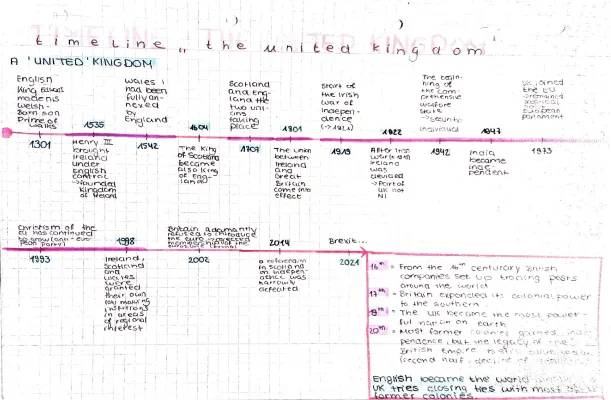 timeline „ the united kingdom "
A 'UNITED' KINGDOM
English
king
made his
welsh-
born son
Prince of
Wales
1301
1535
Henry
brought
Ireland
under
English
control
→ founded
Kingdom
of Ireland
Wales
had been
fully an-
nexed
by
England
1542
1604
The King
of Scotland
became
also King
of Eng-
land
Scotland
and Eng-
land the
two uni-
ons
taking
place
1707
1801
The union
between
Ireland
and
Great
Britain
came into
effect
Start of
the Irish
war of
indepen-
dence
(→ 1921)
1919
1922
After
Ireland
was
devided
→ Part of
UK not
NI
The begin-
ning of
the com-
prehensive
welfare
state
individual
1942
1947
India
became
inde-
pendent
UK joined
the EU
parliament
1973
Criticism of the
EU was continued
1993
1998
Ireland,
Scotland
and
Wales
were
granted
their own
law making
institutions
in areas
of regional
interest
Britain adamantly
refused to introduce
the euro
membership of the
2002
2014
a referendum
in Scotland
on indepen-
dence was
narrowly
defeated
Brexit...
2021
16th = From the 16th century British
companies set up trading posts
around the world
17th = Britain expanded its colonial power
to the southern
19th = The UK became the most power-
ful nation on earth
20th = Most former colonies gained inde-
pendence, but the legacy of the
British Empire
(second half,
English became the world
UK tries closing ties with most
former colonies.